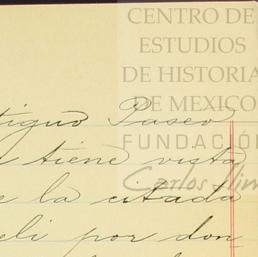 CENTRO DE
ESTUDIOS
DE HISTORIA
DE MEXICO
FUNDACIÓN
Carlos Slim
tiguo Paseo
tiene vista
la citada
eli por don